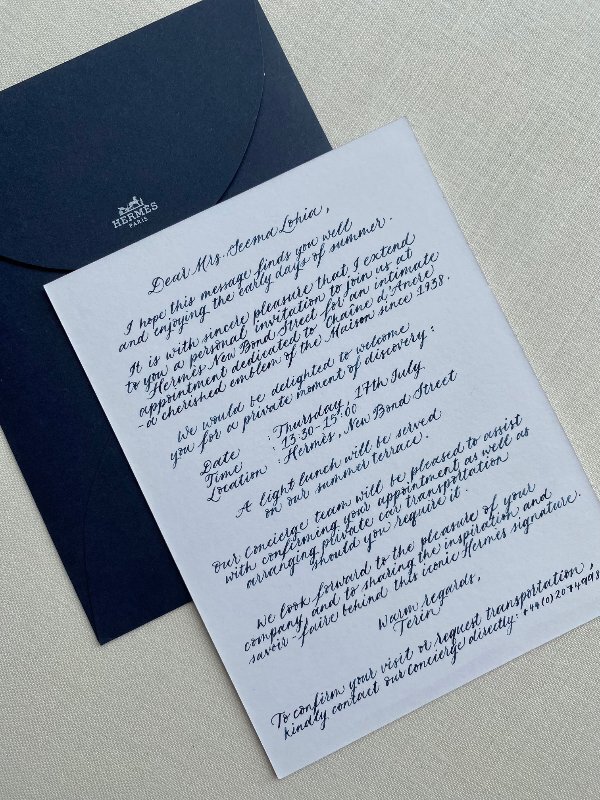 HERMÈS
PARIS
Dear Mrs. Seema Lohia,
I hope this message finds you well
and enjoying the early days of summer.
It is with sincere pleasure that I extend
to you a personal invitation to join us at
Hermès New Bond Street for an intimate
appointment dedicated to Chaîne d'Ancre
- a cherished emblem of the Maison since 1938.
We would be delighted to welcome
you for a private moment of discovery:
Date : Thursday, 17th July
Time : 13:30-15:00
Location : Hermès, New Bond Street
A light lunch will be served
on our summer terrace.
Our Concierge team will be pleased to assist
with confirming your appointment as well as
arranging private car transportation
should you require it.
We look forward to the pleasure of your
company and to sharing the inspiration and
savoir-faire behind this iconic Hermès signature.
Warm regards,
Terin
To confirm your visit or request transportation,
kindly contact our concierge directly: +44(0)20